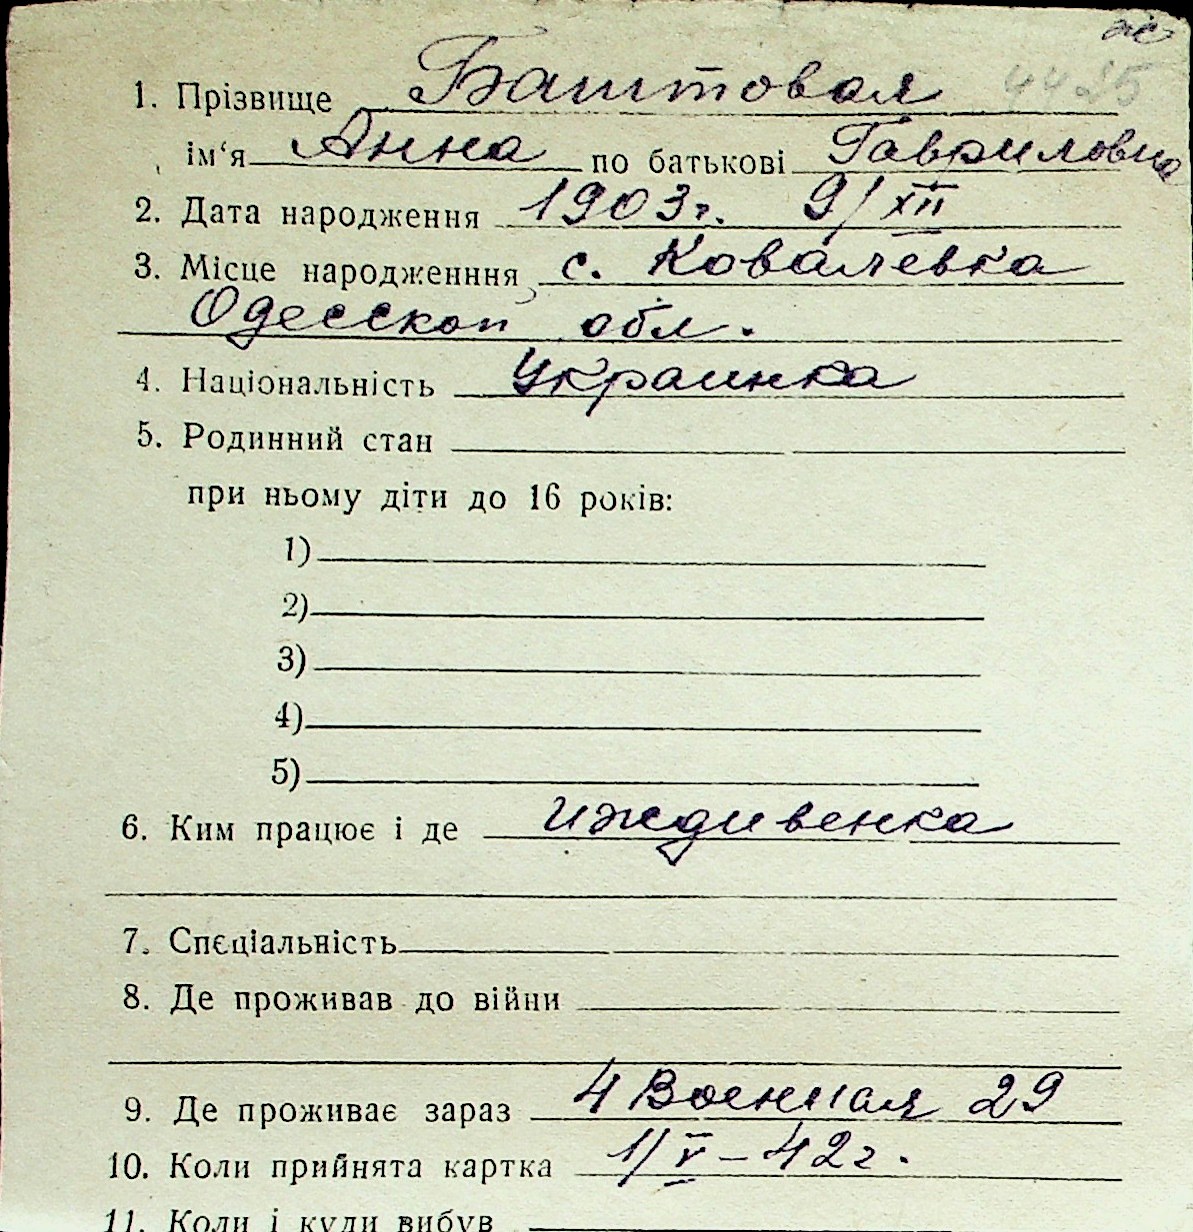 ж
4425
1. Прізвище Баштовая
ім‘я Анна по батькові Гавриловна
2. Дата народження 1903г. 9/XII
3. Місце народженння с. Ковалевка
Одесскоп обл.
4. Національність Украинка
5. Родинний стан
при ньому діти до 16 років:
1)
2)
3)
4)
5)
6. Ким працює і де иждивенка
7. Спєціальність
8. Де проживав до війни
9. Де проживає зараз 4 Военная 29
10. Коли прийнята картка 1/V – 42г.
11. Коли і куди вибув